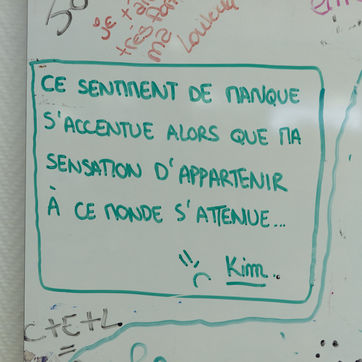 50
je t'ai
très fort
ma
Loulou
CE SENTIMENT DE MANQUE
S'ACCENTUE ALORS QUE MA
SENSATION D'APPARTENIR
À CE MONDE S'ATTENUE...
Kim.
C+E+L
=